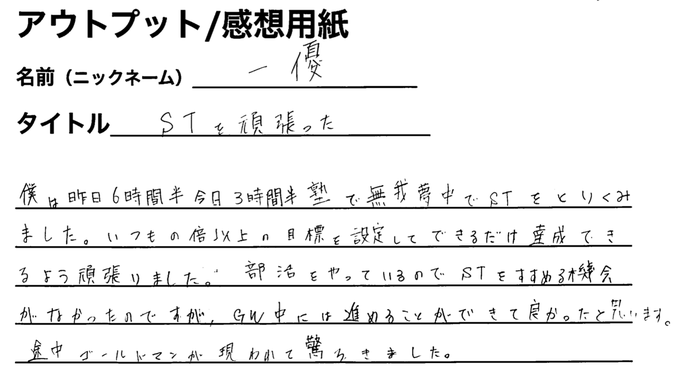 アウトプット/感想用紙
名前（ニックネーム） 一優
タイトル STを頑張った
僕は昨日6時間半今日3時間半塾で無我夢中でSTをとりくみ
ました。いつもの倍以上の目標を設定してできるだけ達成でき
るよう頑張りました。部活をやっているのでSTをすすめる機会
がなかったのですが、GW中には進めることができて良かったと思います。
途中ゴールドマンが現われて驚ろきました。